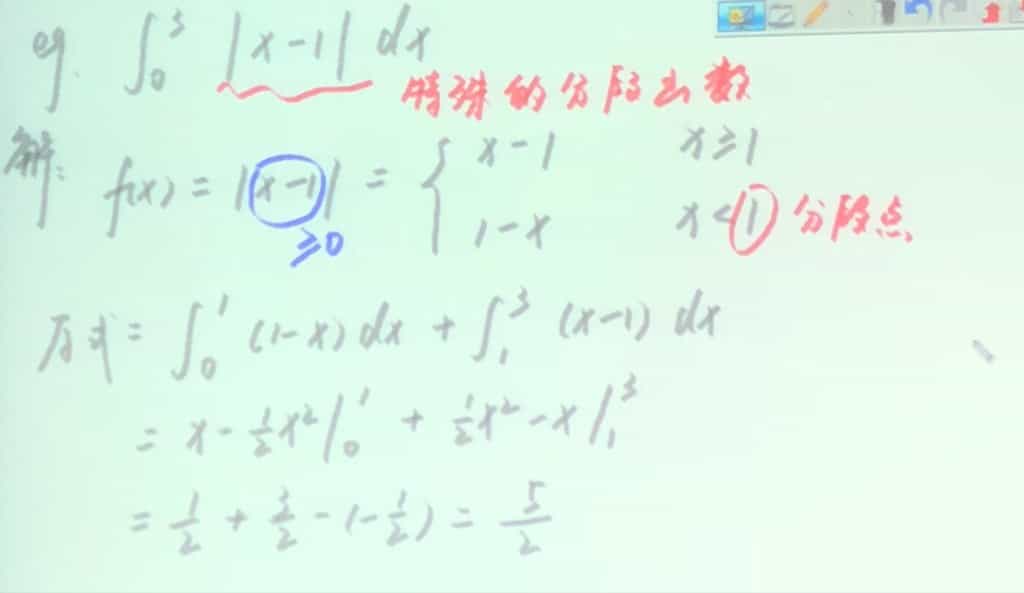 eg. ∫₀³ |x-1| dx
特殊的分段函数
解: f(x) = |x-1| = { x-1 x≥1
≥0
1-x x<1 分段点
原式 = ∫₀¹ (1-x) dx + ∫₁³ (x-1) dx
= x - ½x² |₀¹ + ½x² - x |₁³
= ½ + 3/2 - (-½) = 5/2